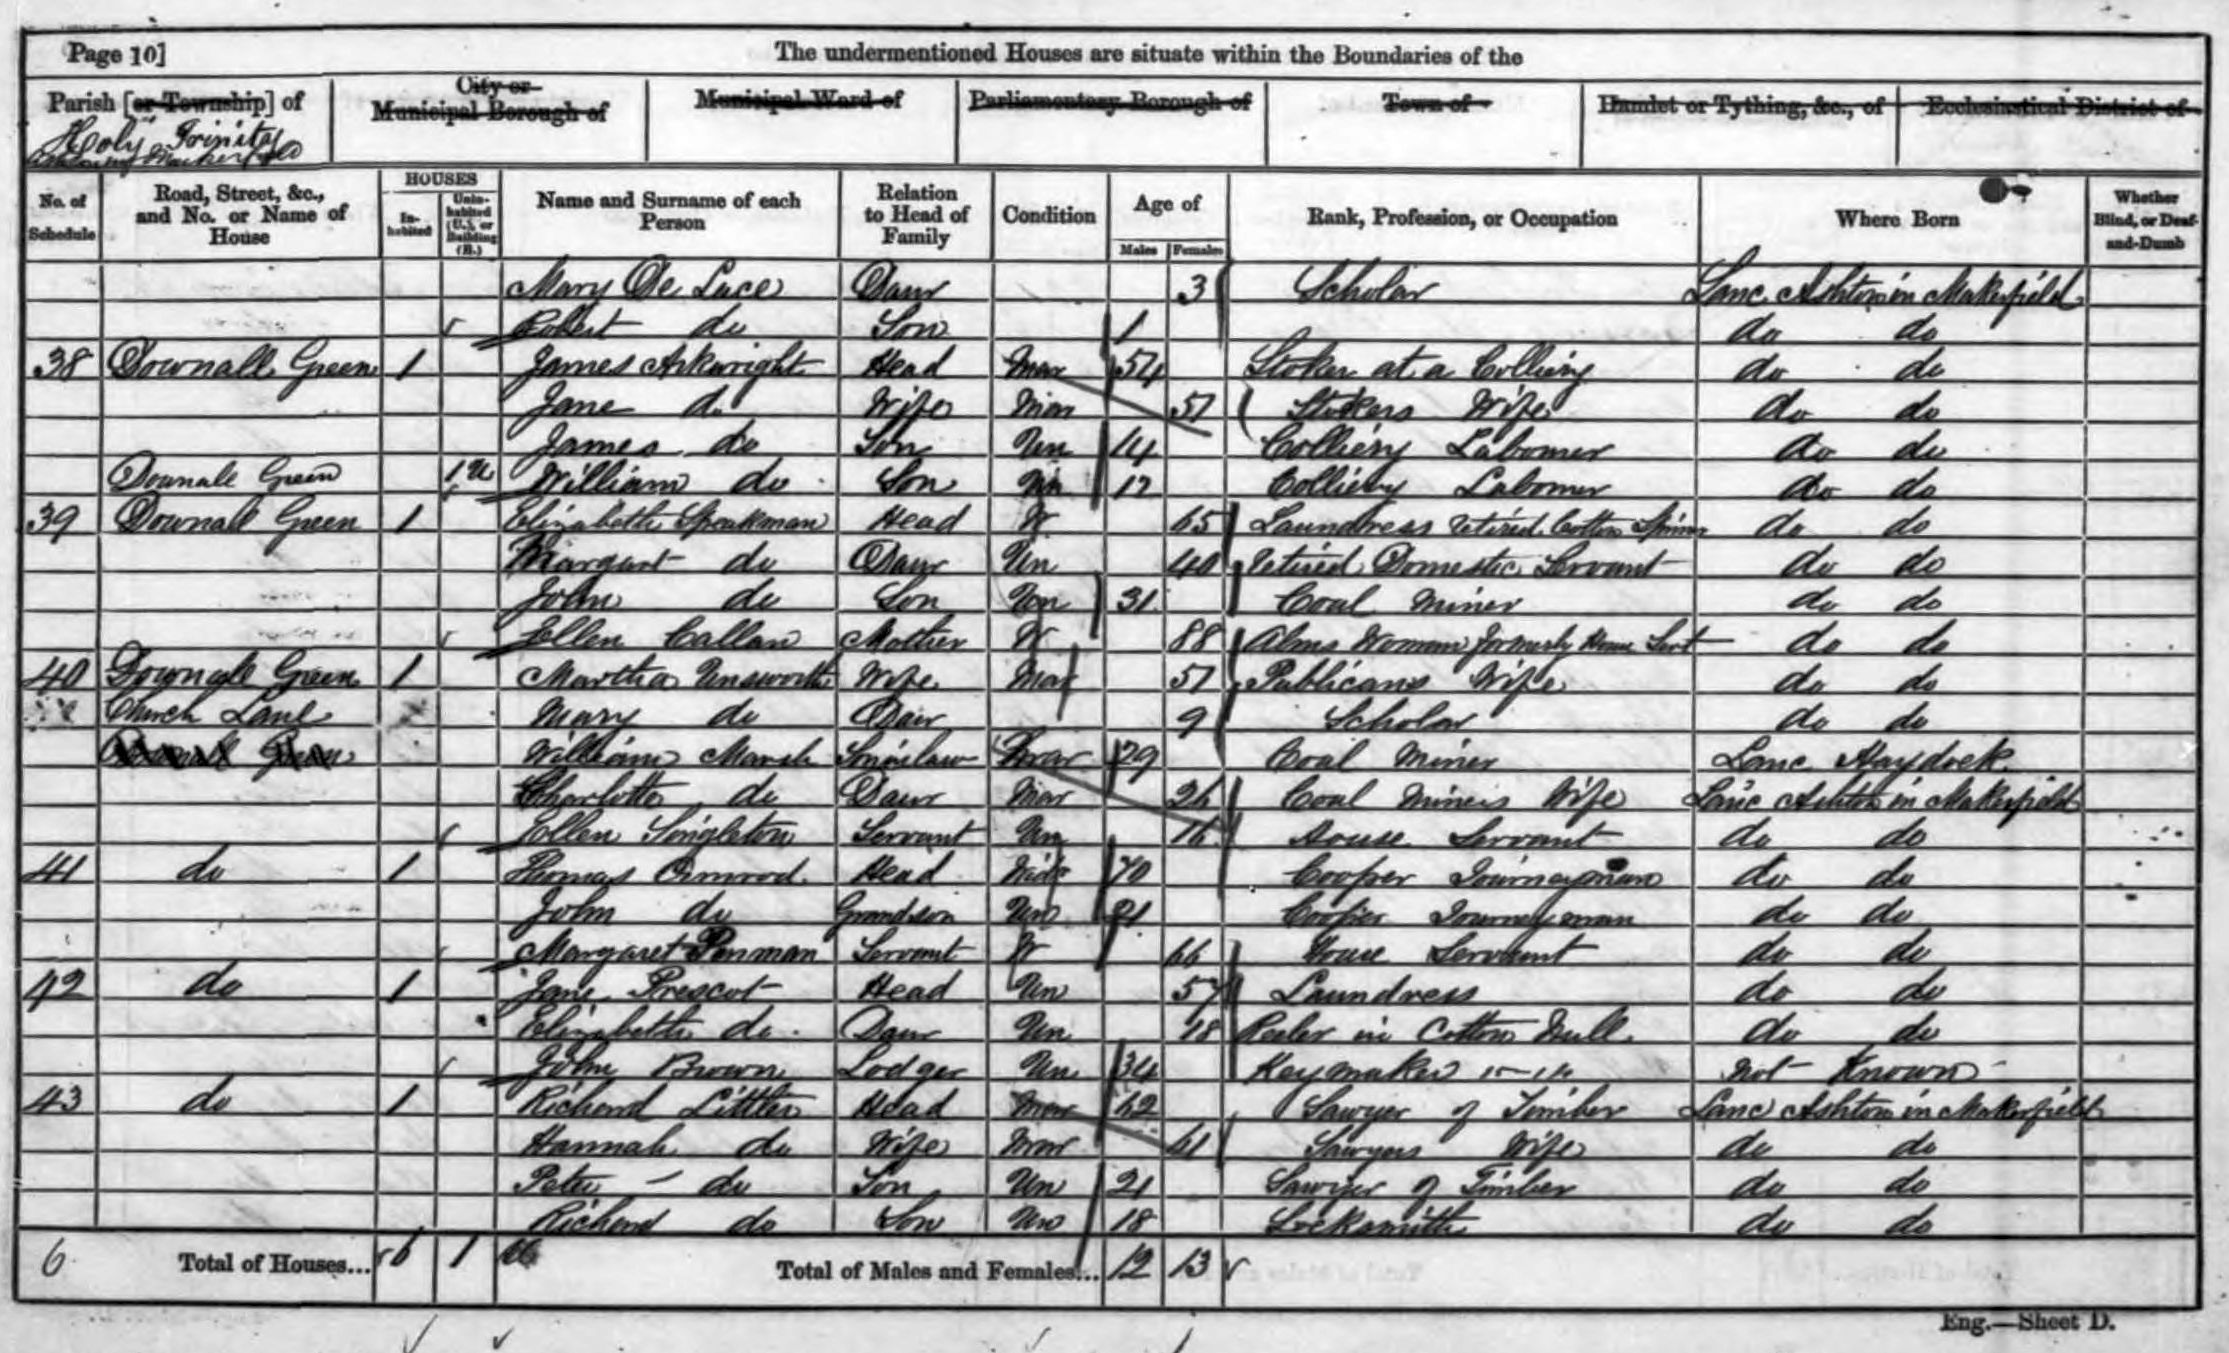 Page 10] The undermentioned Houses are situate within the Boundaries of the
Parish [or Township] of City or Municipal Borough of Municipal Ward of Parliamentary Borough of Town of Hamlet or Tything, &c., of Ecclesiastical District of
Holy Trinity
No. of Schedule Road, Street, &c., and No. or Name of House HOUSES In-habited Unin-habited (U.), or Building (B.) Name and Surname of each Person Relation to Head of Family Condition Age of Males Females Rank, Profession, or Occupation Where Born Whether Blind, or Deaf-and-Dumb
Mary De Luce Daur 3 Scholar Lanc Ashton in Makerfield
Robert do Son 1 do do
38 Downall Green 1 James Arkwright Head Mar 54 Stoker at a Colliery do do
Jane do Wife Mar 51 Stokers Wife do do
James do Son Un 14 Colliery Labourer do do
Downall Green 1 U William do Son Un 12 Colliery Labourer do do
39 Downall Green 1 Elizabeth Speakman Head W 65 Laundress retired Cotton do do
Margaret do Daur Un 40 retired Domestic Servant do do
John do Son Un 31 Coal Miner do do
Ellen Callan Mother W 88 Alms Woman formerly House Servt do do
40 Downall Green 1 Martha Unsworth Wife Mar 51 Publicans Wife do do
Church Lane Mary do Daur 9 Scholar do do
William Marsh Soninlaw Mar 29 Coal Miner Lanc Haydock
Charlotte do Daur Mar 26 Coal Miners Wife Lanc Ashton in Makerfield
Ellen Singleton Servant Un 16 House Servant do do
41 do 1 Thomas Ormrod Head Widr 70 Cooper Journeyman do do
John do Grandson Un 21 Cooper Journeyman do do
Margaret Penman Servant W 66 House Servant do do
42 do 1 Jane Prescot Head Un 57 Laundress do do
Elizabeth do Daur Un 18 Reeler in Cotton Mill do do
John Brown Lodger Un 34 Keymaker Not Known
43 do 1 Richard Littler Head Mar 62 Sawyer of Timber Lanc Ashton in Makerfield
Hannah do Wife Mar 61 Sawyers Wife do do
Peter do Son Un 21 Sawyer of Timber do do
Richard do Son Un 18 Locksmith do do
6 Total of Houses... 6 1 Total of Males and Females... 12 13
Eng.—Sheet D.